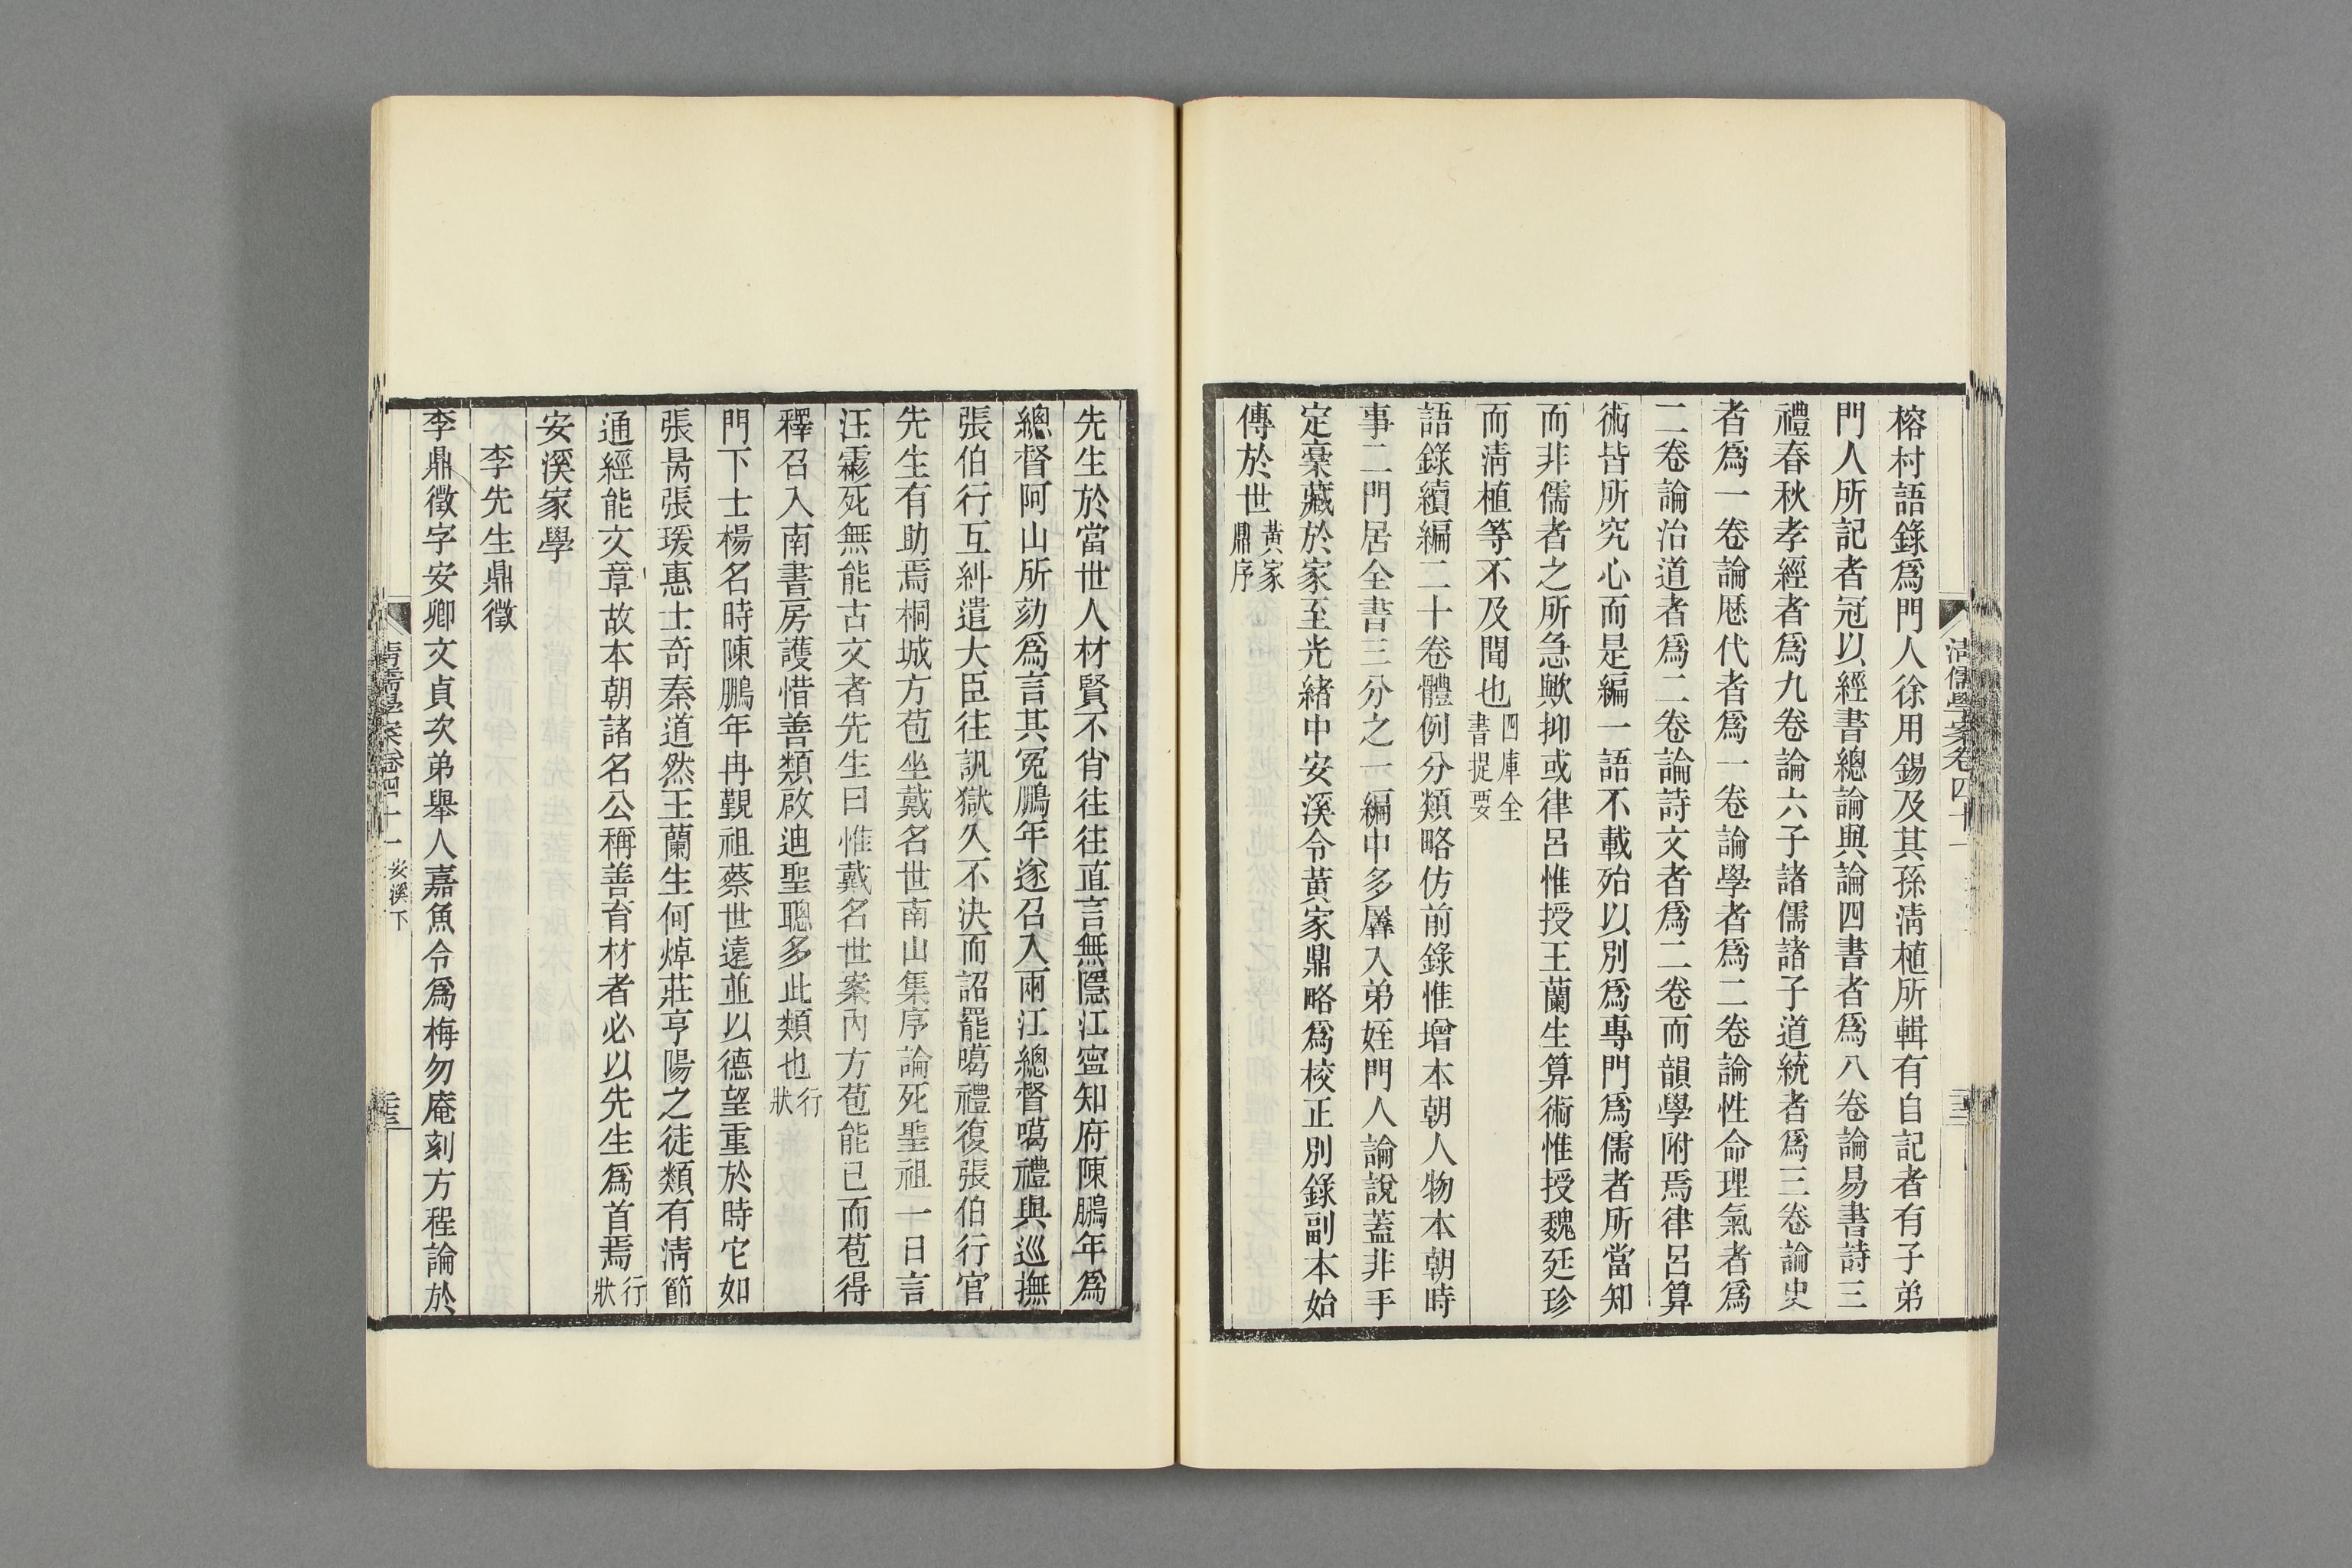 榕村語錄爲門人徐用錫及其孫淸植所輯有自記者有子弟
門人所記者冠以經書總論與論四書者爲八卷論易書詩三
禮春秋孝經者爲九卷論六子諸儒諸子道統者爲三卷論史
者爲一卷論歷代者爲一卷論學者爲二卷論性命理氣者爲
二卷論治道者爲二卷論詩文者爲二卷而韻學附焉律呂算
術皆所究心而是編一語不載殆以別爲專門爲儒者所當知
而非儒者之所急歟抑或律呂惟授王蘭生算術惟授魏廷珍
而淸植等不及聞也四庫全書提要
語錄續編二十卷體例分類略仿前錄惟增本朝人物本朝時
事二門居全書三分之一編中多羼入弟姪門人論說蓋非手
定稾藏於家至光緒中安溪令黃家鼎略爲校正別錄副本始
傳於世黃家鼎序
淸儒學案卷四十一
先生於當世人材賢不肖往往直言無隱江寧知府陳鵬年爲
總督阿山所劾爲言其冤鵬年遂召入兩江總督噶禮與巡撫
張伯行互糾遣大臣往訊獄久不決而詔罷噶禮復張伯行官
先生有助焉桐城方苞坐戴名世南山集序論死聖祖一日言
汪霦死無能古文者先生曰惟戴名世案內方苞能已而苞得
釋召入南書房護惜善類啟迪聖聰多此類也行狀
門下士楊名時陳鵬年冉覲祖蔡世遠並以德望重於時它如
張昺張瑗惠士奇秦道然王蘭生何焯莊亨陽之徒類有淸節
通經能文章故本朝諸名公稱善育材者必以先生爲首焉行狀
安溪家學
李先生鼎徵
李鼎徵字安卿文貞次弟舉人嘉魚令爲梅勿庵刻方程論於
淸儒學案卷四十一 安溪下